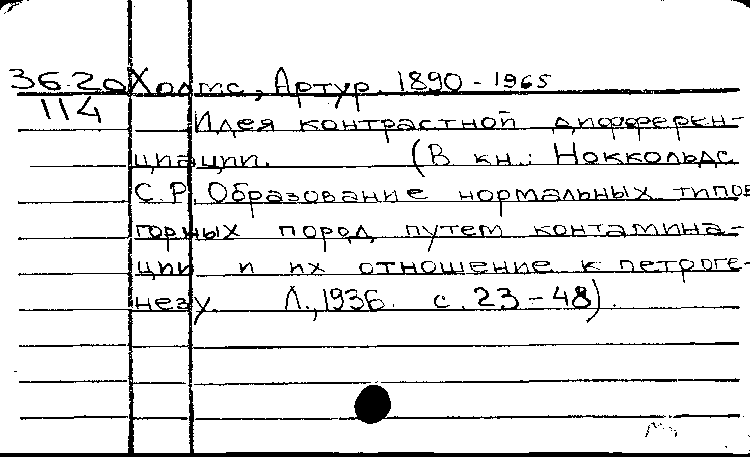 36.20 Холмс, Артур. 1890-1965
114
Идея контрастной дифферен-
циации. (В кн.: Ноккольдс
С.Р. Образование нормальных типов
горных пород путем контамина-
ции и их отношение к петроге-
незу. Л., 1936. с. 23-48).